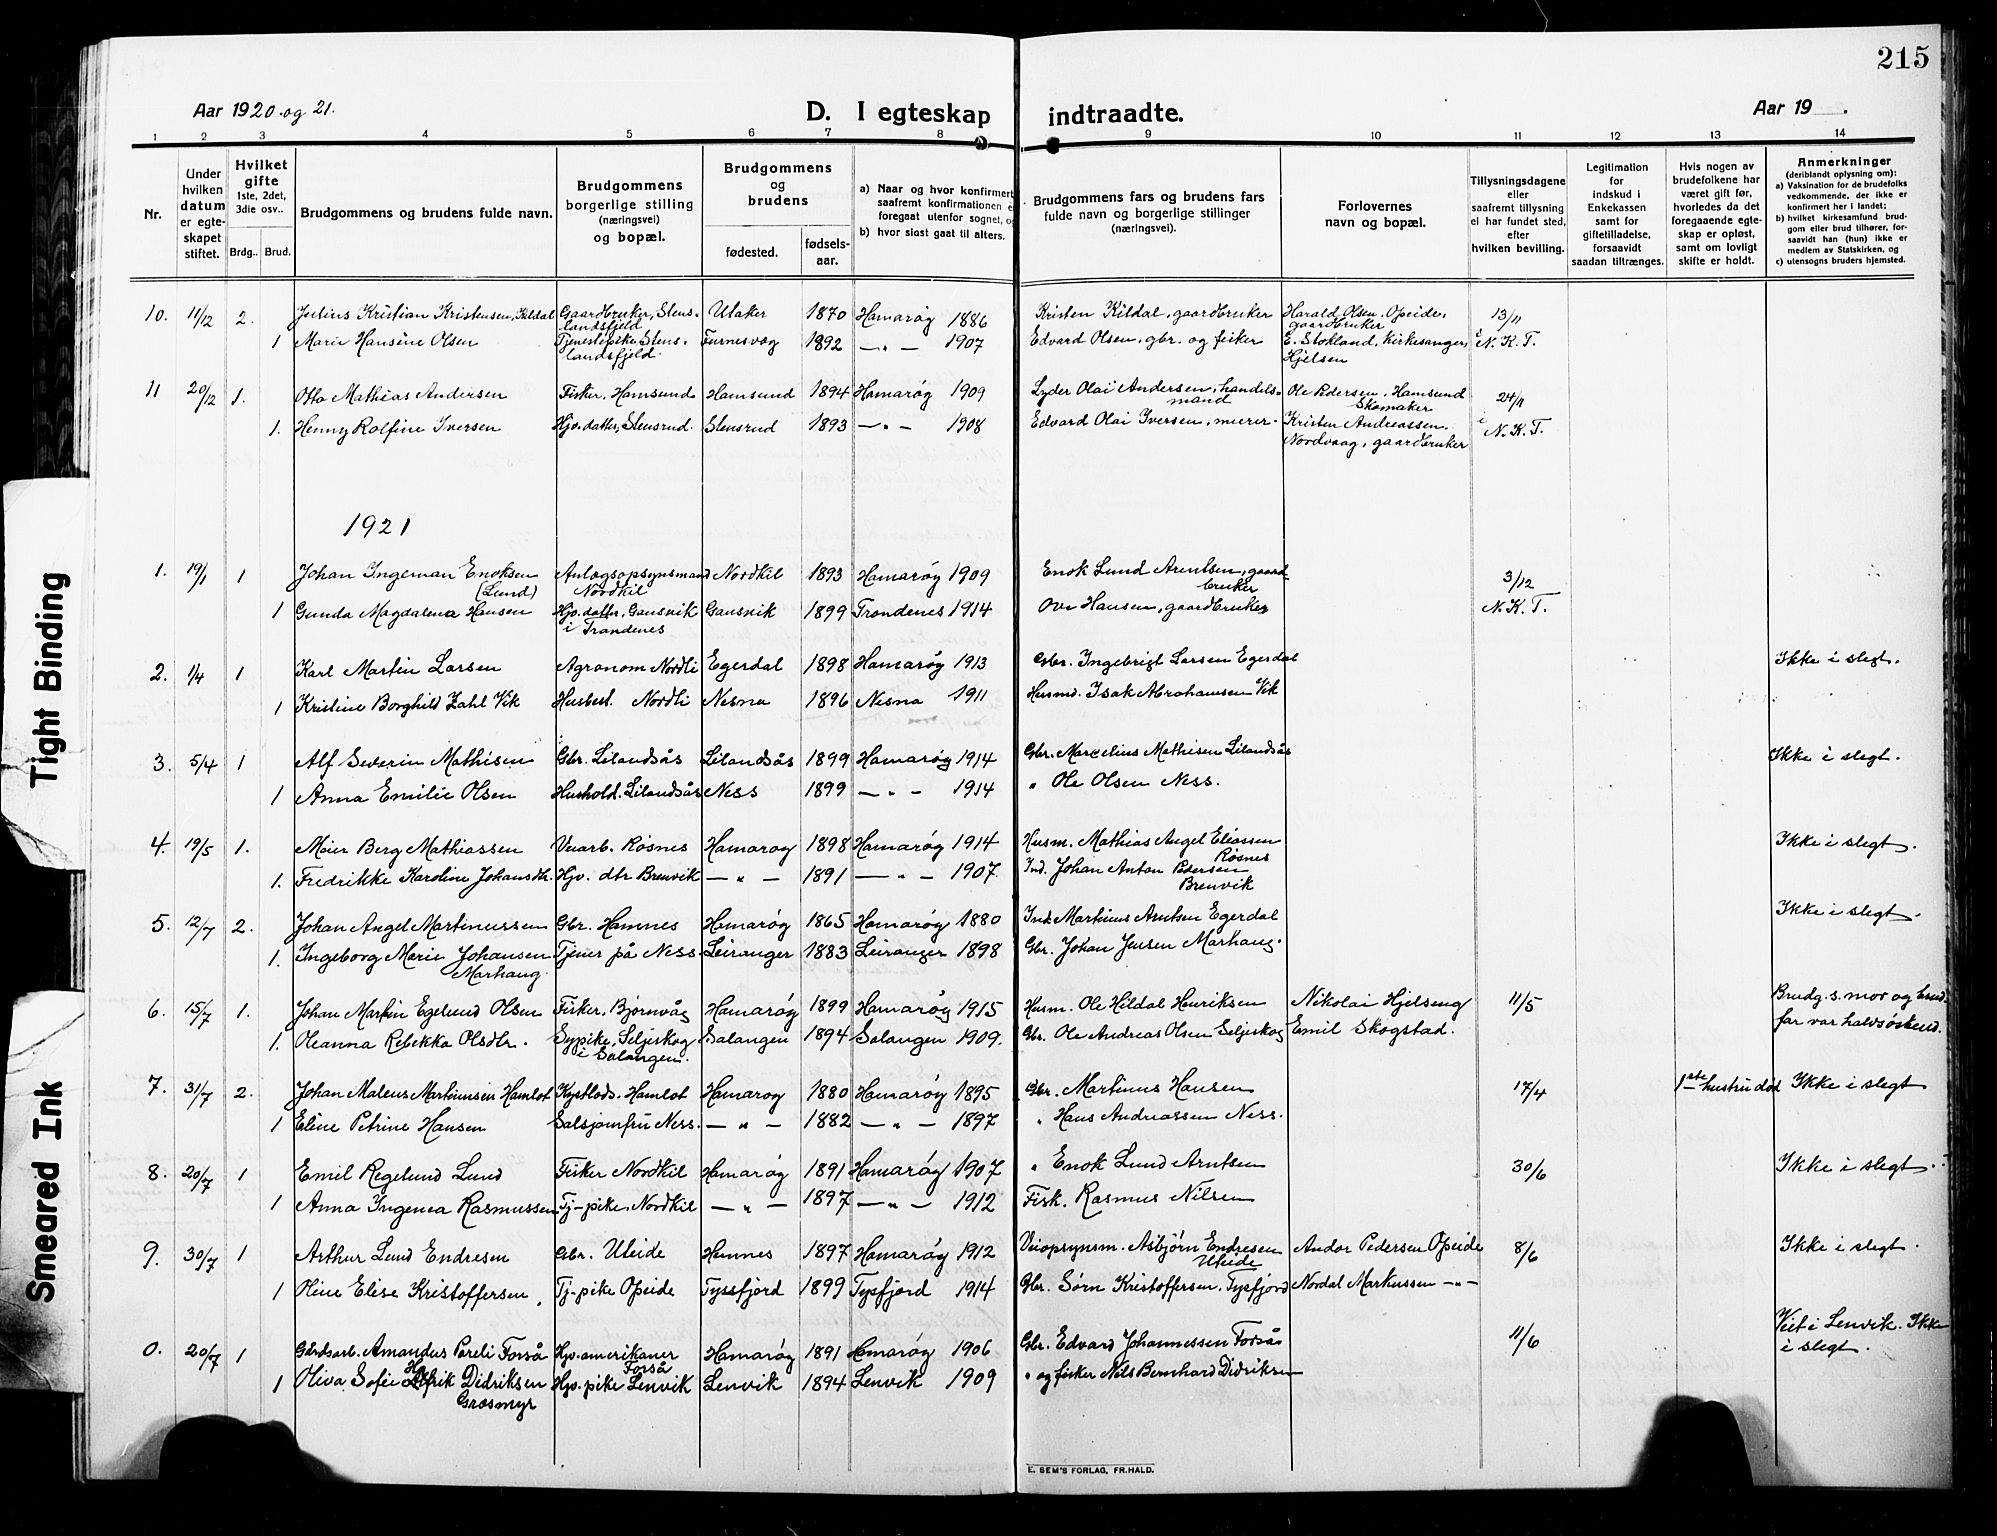 215
Aar 1920 og 21.
D. I egteskap indtraadte.
Aar 19 .
1 2 3 4 5 6 7 8 9 10 11 12 13 14
Nr.
Under hvilken datum er egteskapet stiftet.
Hvilket gifte 1ste, 2det, 3die osv..
Brdg.. Brud.
Brudgommens og brudens fulde navn.
Brudgommens borgerlige stilling (næringsvei) og bopæl.
Brudgommens og brudens
fødested. fødsels-aar.
a) Naar og hvor konfirmert, saafremt konfirmationen foregaat utenfor sognet, og
b) hvor sidst gaat til alters.
Brudgommens fars og brudens fars fulde navn og borgerlige stillinger (næringsvei).
Forlovernes navn og bopæl.
Tillysningsdagene eller saafremt tillysning ei har fundet sted, efter hvilken bevilling.
Legitimation for indskud i Enkekassen samt for giftetilladelse, forsaavidt saadan tiltrænges.
Hvis nogen av brudefolkene har været gift før, hvorledes da det foregaaende egteskap er opløst, samt om lovligt skifte er holdt.
Anmerkninger (deriblandt oplysning om):
a) Vaksination for de brudefolks vedkommende, der ikke er konfirmert her i landet;
b) hvilket kirkesamfund brudgom eller brud tilhører, forsaavidt han (hun) ikke er medlem av Statskirken, og
c) utensogns bruders hjemsted.
10. 11/12 2. Julius Kristian Kristensen, Kildal Gaardbruker, Stenslandsfjeld Ulaker 1870 Hamarøy 1886 Kristen Kildal, gaardbruker Harald Olsen, Opeide, gaardbruker 13/11
1 Marie Hansine Olsen Tjenestepike, Stenslandsfjeld. Furnesvag 1892 — " — 1907 Edvard Olsen, gbr. og fisker E. Stokland, Kirkesanger, Hjelsen i N. K. T.
11 20/12 1. Otto Mathias Andersen Fisker, Hamsund Hamsund 1894 Hamarøy 1909 Lyder Olai Andersen, handelsmand Ole Pedersen, Hamsund Skomaker 24/11
1. Henny Rolfine Iversen Hjv. datter, Stensrud Stensrud 1893 — " — 1908 Edvard Olai Iversen, murer. Kristen Andreassen, Nordvaag, gaardbruker i N. K. T.
1921
1. 19/1 1 Johan Ingeman Enoksen (Lund) Anlægsopsynsmand Nordkil Nordkil 1893 Hamarøy 1909 Enok Lund Arntsen, gaardbruker 3/12
1 Gunda Magdalena Hansen Hjv. datter, Gausvik i Trondenes Gausvik 1899 Trondenes 1914 Ove Hansen, gaardbruker N. K. T.
2. 1/4 1 Karl Martin Larsen Agronom Nordli Egerdal 1898 Hamarøy 1913 Gbr. Ingebrigt Larsen Egerdal Ikke i slegt.
1 Kristine Borghild Zahl Vik Husbest. Nordli Nesna 1896 Nesna 1911 Husmd. Isak Abrahamsen Vik
3. 5/4 1 Alf Severin Mathisen Gbr. Lilandsås Lilandsås 1899 Hamarøy 1914 Gbr. Marcelius Mathisen Lilandsås Ikke i slegt.
1 Anna Emilie Olsen Hushold. Lilandsås Ness 1899 — " — 1914 " Ole Olsen Ness.
4. 19/5 1. Meier Berg Mathiassen Veiarb. Røsnes Hamarøy 1898 Hamarøy 1914 Husm. Mathias Angel Eliassen Røsnes Ikke i slegt.
1. Fredrikke Karoline Johansdtr. Hjv. dtr Brenvik — " — 1891 — " — 1907 Ind. Johan Anton Pedersen Brenvik
5. 12/7 2. Johan Angel Martinussen Gbr. Hamnes Hamarøy 1865 Hamarøy 1880 Ind. Martinus Arntsen Egerdal Ikke i slegt.
1. Ingeborg Marie Johansen Marhaug Tjener på Ness. Leiranger 1883 Leiranger 1898 Gbr. Johan Jensen Marhaug.
6. 15/7 1. Johan Martin Egelund Olsen Fisker, Bjørnvåg Hamarøy 1899 Hamarøy 1915 Husm. Ole Hildal Henriksen Nikolai Hjelseng 11/5 Brudg.s mor og brud. far var halvsøskend.
1. Oleanna Rebekka Olsdtr. Sypike, Seljeskog i Salangen. Salangen 1894 Salangen 1909. Gbr. Ole Andreas Olsen Seljeskog Emil Skogstad.
7. 31/7 2. Johan Mateus Martinusen Hamlot Kystlods. Hamlot Hamarøy 1880 Hamarøy 1895 Gbr. Martinus Hansen 17/4 1ste hustru død Ikke i slegt
1 Eline Petrine Hansen Salsjomfru Ness. — " — 1882 — " — 1897 " Hans Andreassen Ness.
8. 20/7 1 Emil Regelund Lund Fisker Nordkil Hamarøy 1891 Hamarøy 1907 " Enok Lund Arntsen 30/6 Ikke i slegt.
1 Anna Ingenea Rasmussen Tj-pike, Nordkil — " — 1897 — " — 1912 Fisk. Rasmus Nilsen
9. 30/7 1 Arthur Lund Endresen Gbr. Uleide Hamnes 1897 Hamarøy 1912 Veiopsynsm. Asbjørn Endresen Uleide Andor Pedersen Opeide 8/6 Ikke i slegt.
1 Oline Elise Kristoffersen Tj-pike Opeide Tyssfjord 1899 Tysfjord 1914 Gbr. Sørn Kristoffersen, Tysfjord Nordal Markussen — " —
0. 20/7 1 Gårdsarb. Amandus Pareli Forså Hjv. amerikaner Forså Hamarøy 1891 Hamarøy 1906 Gbr. Edvard Johannessen Forså 11/6 Viet i Lenvik. Ikke i slegt.
1 Oliva Sofie Didriksen Grasmyr Hjv. pike Lenvik Lenvik 1894 Lenvik 1909 " og fisker Nils Bernhard Didriksen
E. SEM'S FORLAG, FR.HALD.
Tight Binding
Smeared Ink